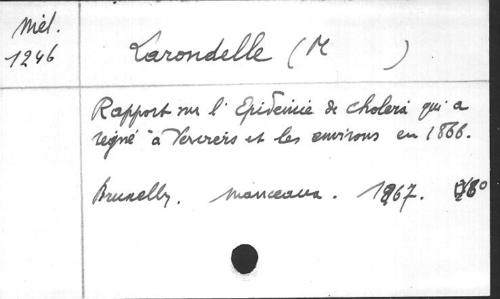 Mél.
1246
Larondelle (M )
Rapport sur l'Epidémie de choléra qui a
régné à Verviers et les environs en 1866.
Bruxelles. Manceaux. 1867. 8°